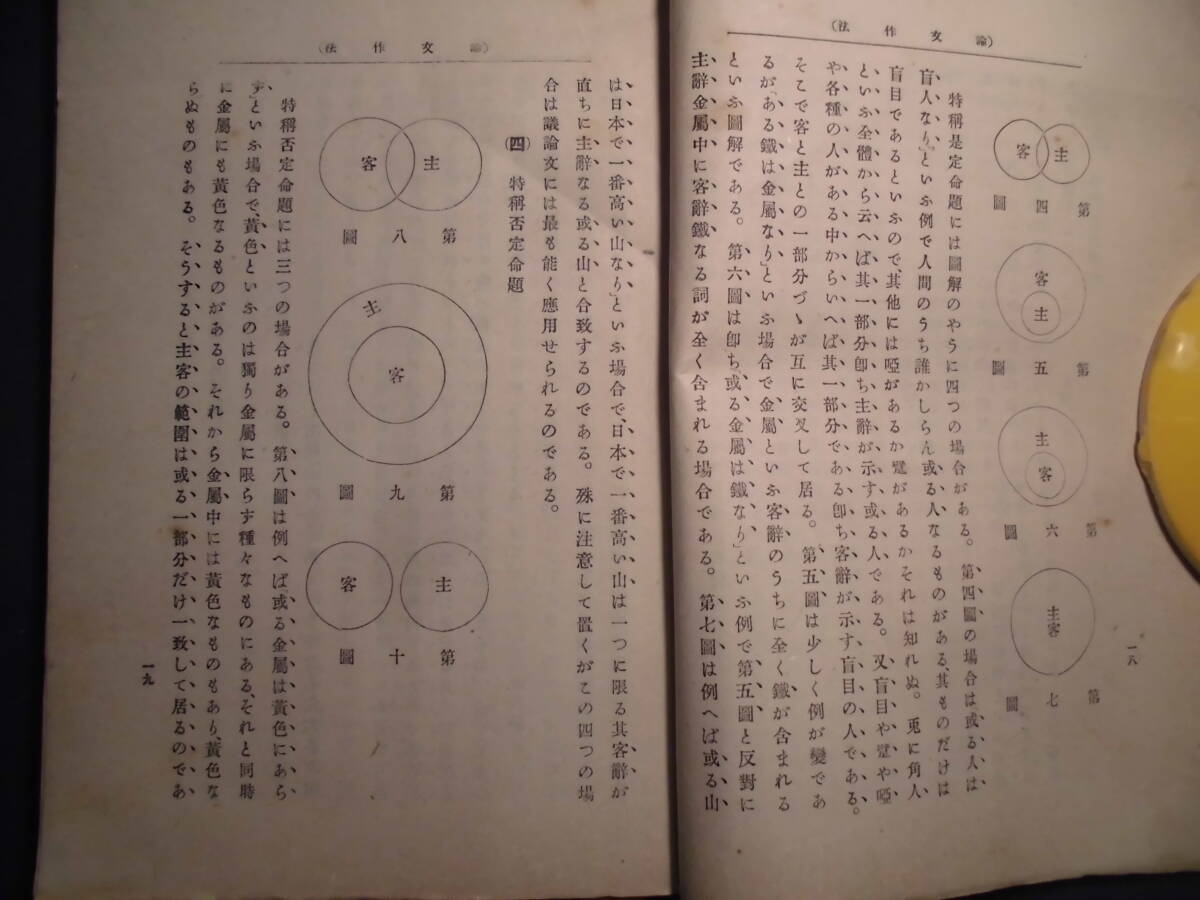 （論文作法）
客 主
第四圖
客
主
第五圖
主
客
第六圖
主客
第七圖
一八
特稱是定命題には圖解のやうに四つの場合がある。第四圖の場合は或る人は、
盲人なり」といふ例で人間のうち誰かしらん或る人なるものがある、其ものだけは
盲目であるといふので、其他には啞があるか躄があるかそれは知れぬ。兎に角人、
といふ全體から云へば其一部分卽ち主辭が示す或る人である。又盲目や躄や啞
や各種の人がある中からいへば其一部分である、卽ち客辭が示す盲目の人である。
そこで客と主との一部分づゝが互に交叉して居る。第五圖は少しく例が變であ
るが「ある鐵は金屬なり」といふ場合で金屬といふ客辭のうちに全く鐵が含まれる
といふ圖解である。第六圖は卽ち「或る金屬は鐵なり」といふ例で第五圖と反對に
主辭金屬中に客辭鐵なる詞が全く含まれる場合である。第七圖は例へば「或る山
（論文作法）
は日本で一番高い山なり」といふ場合で、日本で一番高い山は一つに限る其客辭が
直ちに主辭なる或る山と合致するのである。殊に注意して置くがこの四つの場
合は議論文には最も能く應用せられるのである。
㈣ 特稱否定命題
客 主
第八圖
主
客
第九圖
客 主
第十圖
特稱否定命題には三つの場合がある。第八圖は例へば「或る金屬は黃色にあら
ず」といふ場合で、黃色といふのは獨り金屬に限らず種々なものにある、それと同時
に金屬にも黃色なるものがある。それから金屬中には黃色なものもあり、黃色な
らぬものもある。そうすると主客の範圍は或る一部分だけ一致して居るのであ
一九